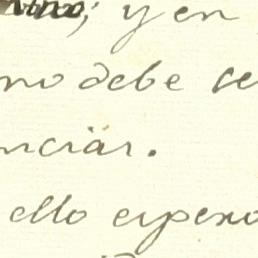 ; y en
no debe se
nciar.
ello espero